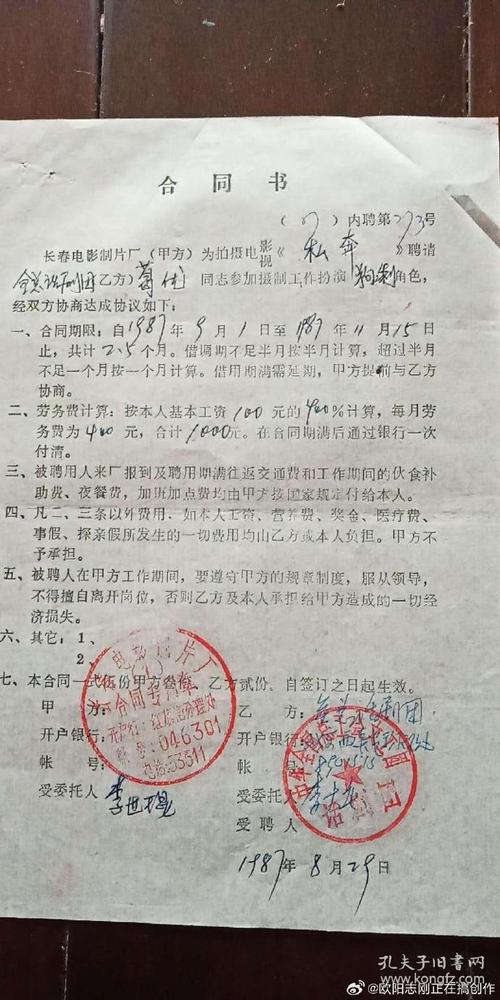 合同书
(87)内聘第273号
长春电影制片厂(甲方)为拍摄电影视《私奔》聘请
全总话剧团乙方)葛优同志参加摄制工作扮演 角色,
经双方协商达成协议如下:
一、合同期限:自1987年9月1日至1987年11月15日
止,共计2.5个月。借调期不足半月按半月计算,超过半月
不足一个月按一个月计算。借用期满需延期,甲方提前与乙方
协商。
二、劳务费计算:按本人基本工资100元的400%计算,每月劳
务费为400元,合计1000元。在合同期满后通过银行一次
付清。
三、被聘用人来厂报到及聘用期满往返交通费和工作期间的伙食补
助费、夜餐费,加班加点费均由甲方按国家规定付给本人。
四、凡二、三条以外费用,如本人工资、营养费、奖金、医疗费、
事假、探亲假所发生的一切费用均由乙方或本人负担。甲方不
予承担。
五、被聘人在甲方工作期间,要遵守甲方的规章制度,服从领导,
不得擅自离开岗位,否则乙方及本人承担给甲方造成的一切经
济损失。
六、其它:1、
2、
七、本合同一式伍份甲方叁份,乙方贰份,自签订之日起生效。
甲方:
乙方:全总话剧团
开户银行:
开户银行:
帐号:
帐号:
受委托人
受委托人
受聘人
1987年8月29日
长春电影制片厂
合同专用章
开户行:红旗街办理处
帐号:046301
电话:53311
中华全国总工会文工团
话剧团
孔夫子旧书网
@欧阳志刚正在搞创作